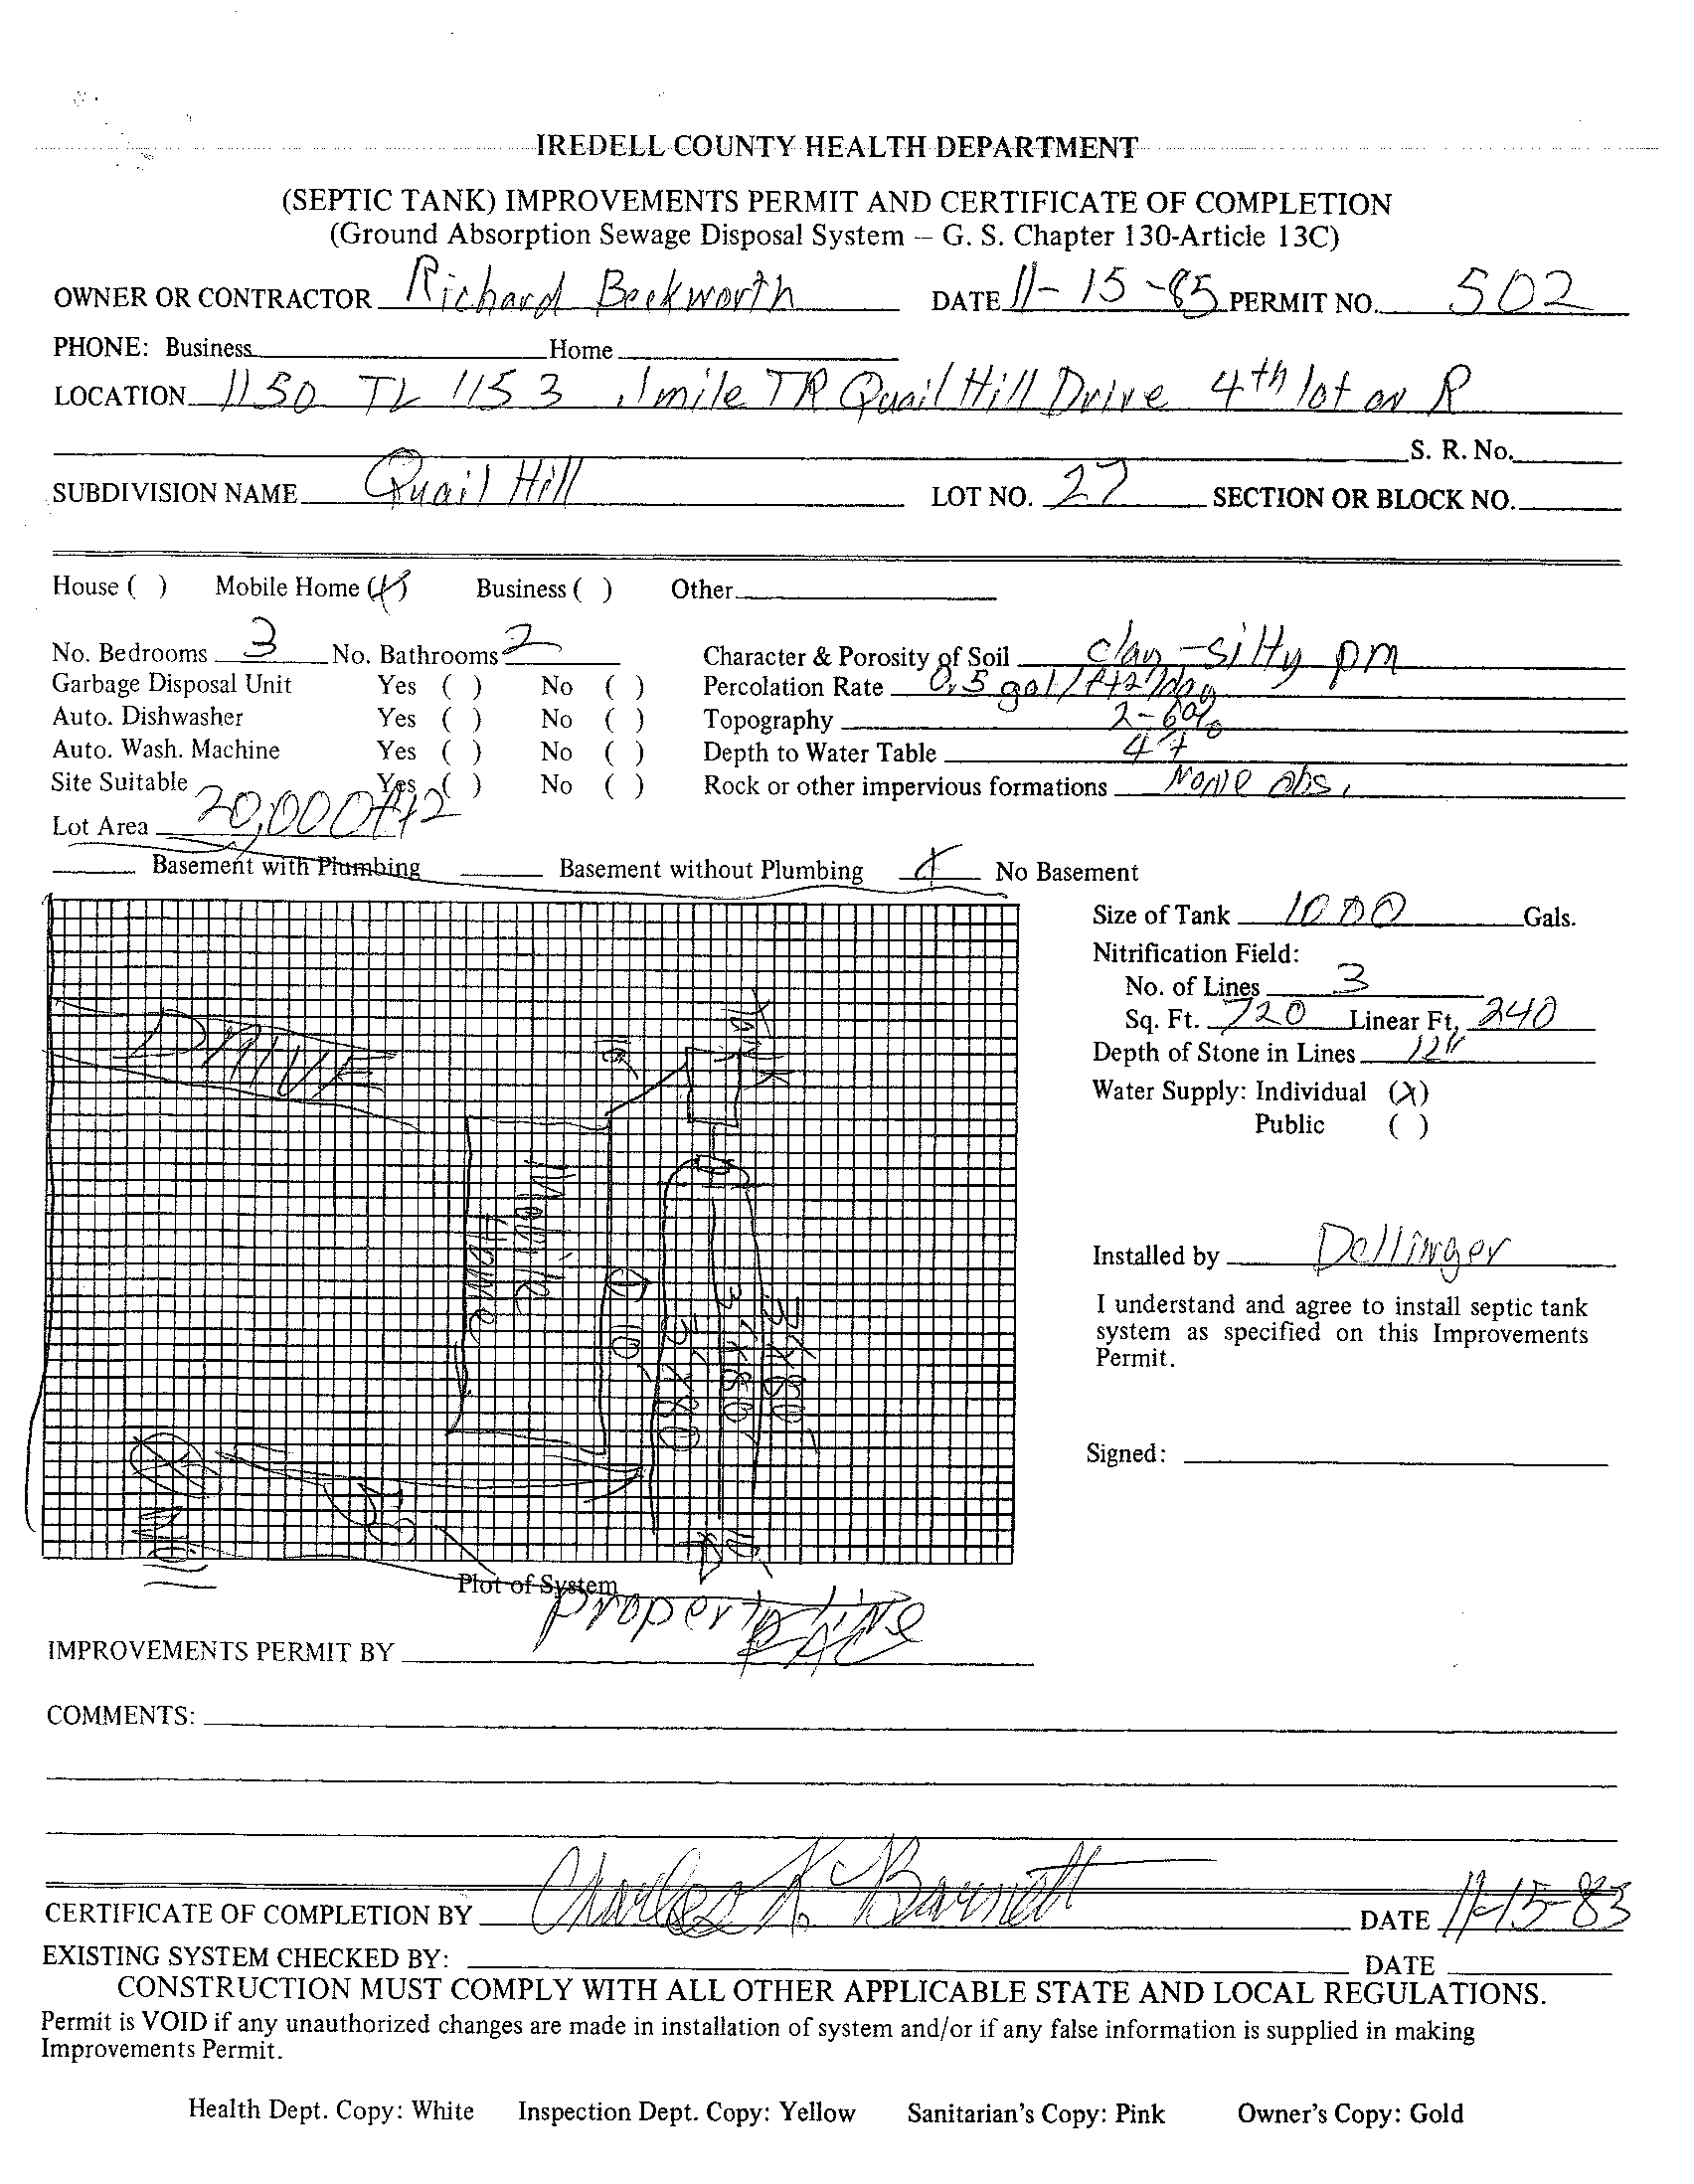 IREDELL COUNTY HEALTH DEPARTMENT
(SEPTIC TANK) IMPROVEMENTS PERMIT AND CERTIFICATE OF COMPLETION
(Ground Absorption Sewage Disposal System – G. S. Chapter 130-Article 13C)
OWNER OR CONTRACTOR Richard Beckworth DATE 11-15-85 PERMIT NO. 502
PHONE: Business Home
LOCATION 1150 TL 1153 .1 mile TR Quail Hill Drive 4th lot on R
S. R. No.
SUBDIVISION NAME Quail Hill LOT NO. 27 SECTION OR BLOCK NO.
House ( ) Mobile Home (X) Business ( ) Other
No. Bedrooms 3 No. Bathrooms 2 Character & Porosity of Soil clay-silty pm
Garbage Disposal Unit Yes ( ) No ( ) Percolation Rate 0.5 gal/ft2/day
Auto. Dishwasher Yes ( ) No ( ) Topography 2-6%
Auto. Wash. Machine Yes ( ) No ( ) Depth to Water Table 4'+
Site Suitable Yes ( ) No ( ) Rock or other impervious formations None obs.
Lot Area 20,000ft2
Basement with Plumbing Basement without Plumbing X No Basement
Size of Tank 1000 Gals.
Nitrification Field:
No. of Lines 3
Sq. Ft. 720 Linear Ft. 240
Depth of Stone in Lines 12"
Water Supply: Individual (X)
Public ( )
DRIVE
Tank
Mobile Home
10'
3'X80'
3'X80'
3'X80'
10'
Installed by Dellinger
I understand and agree to install septic tank
system as specified on this Improvements
Permit.
Signed:
Plot of System
property line
IMPROVEMENTS PERMIT BY
COMMENTS:
CERTIFICATE OF COMPLETION BY Charles K. Barnett DATE 11-15-83
EXISTING SYSTEM CHECKED BY: DATE
CONSTRUCTION MUST COMPLY WITH ALL OTHER APPLICABLE STATE AND LOCAL REGULATIONS.
Permit is VOID if any unauthorized changes are made in installation of system and/or if any false information is supplied in making
Improvements Permit.
Health Dept. Copy: White Inspection Dept. Copy: Yellow Sanitarian's Copy: Pink Owner's Copy: Gold